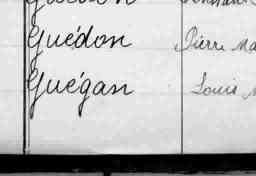 Guédon Pierre Ma
Guégan Louis M